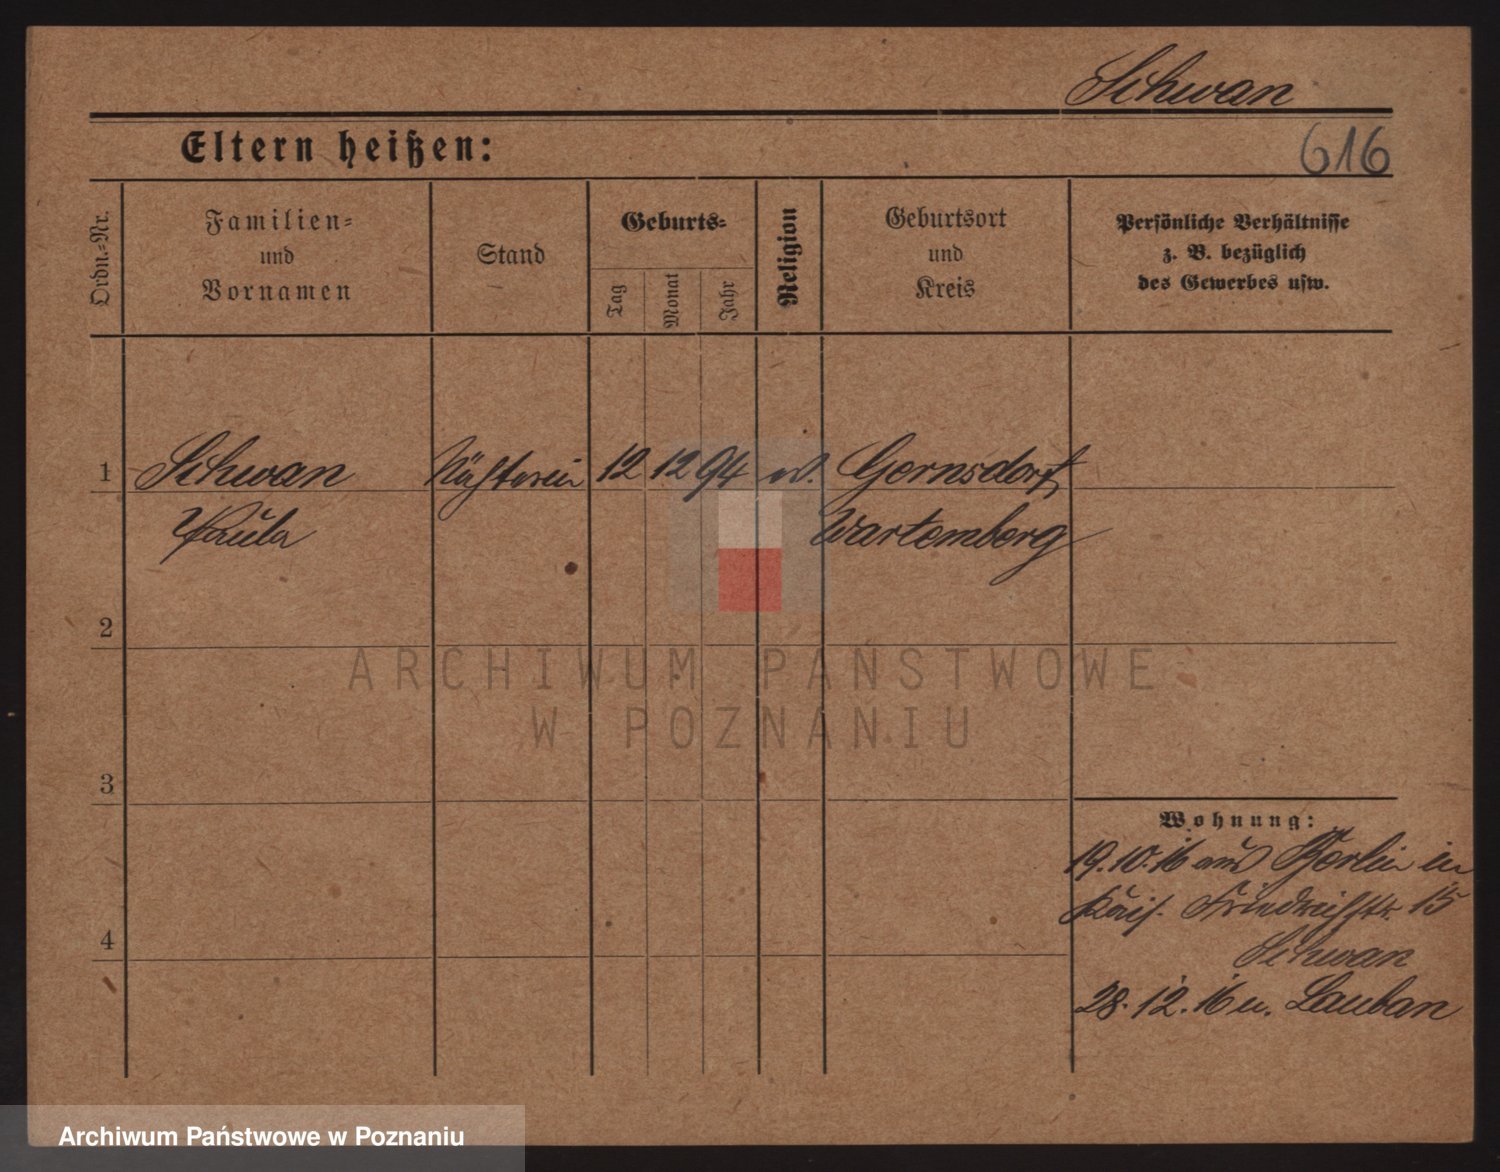 Schwan
Eltern heißen:
616
Ordn.-Nr.
Familien-
und
Vornamen
Stand
Geburts-
Tag
Monat
Jahr
Religion
Geburtsort
und
Kreis
Persönliche Verhältnisse
z. B. bezüglich
des Gewerbes usw.
1 Schwan 12 12 94 ev. Gernsdorf
Paula Wartemberg
2
ARCHIWUM PAŃSTWOWE
W POZNANIU
3
Wohnung:
19.10.16 aus Berlin in
Kais. Friedrichstr. 15
4
Schwan
28.12.16 n. Lauban
Archiwum Państwowe w Poznaniu